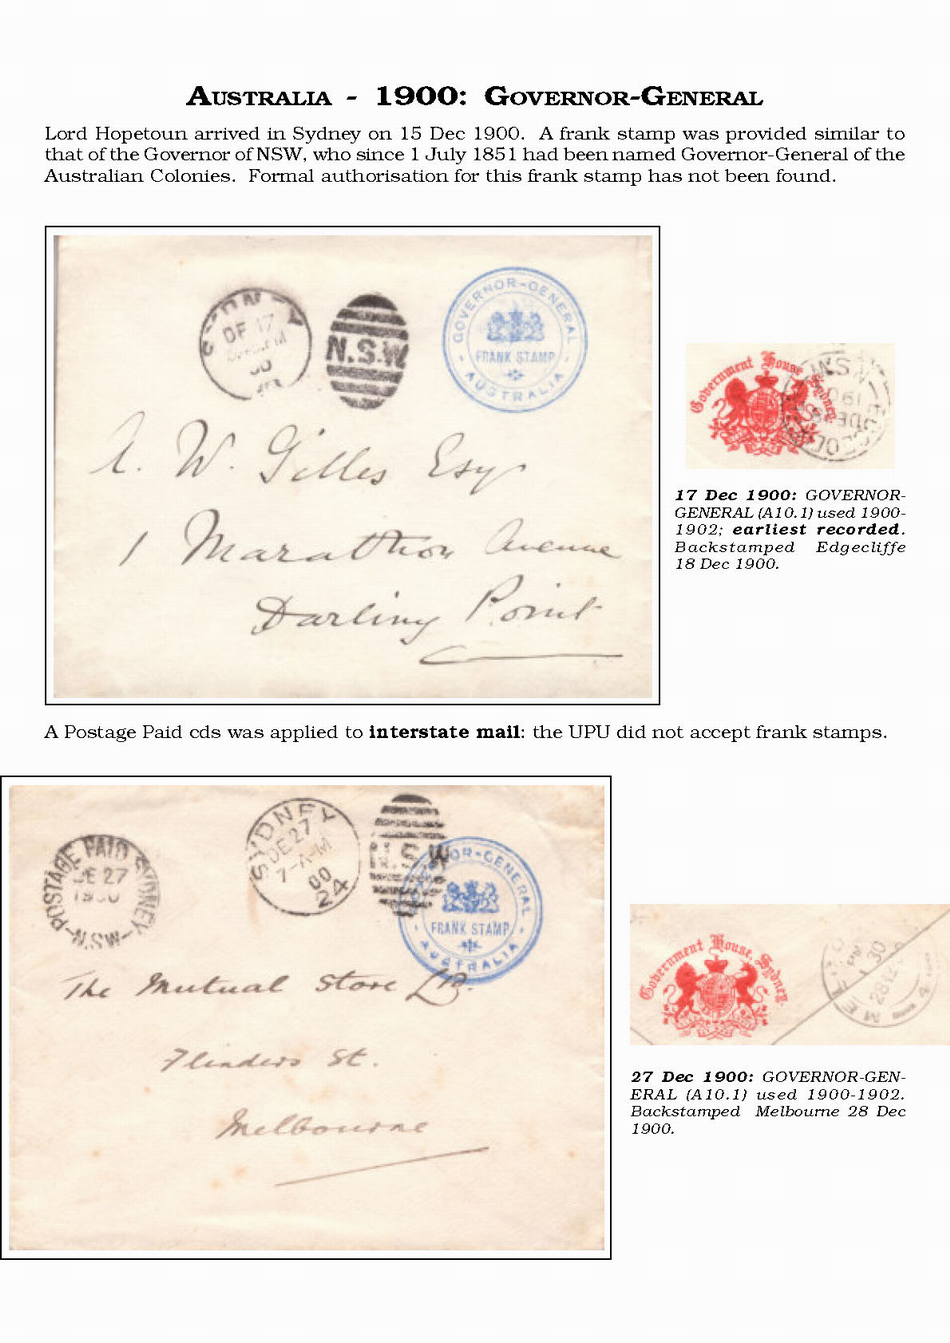 AUSTRALIA - 1900: GOVERNOR-GENERAL
Lord Hopetoun arrived in Sydney on 15 Dec 1900. A frank stamp was provided similar to
that of the Governor of NSW, who since 1 July 1851 had been named Governor-General of the
Australian Colonies. Formal authorisation for this frank stamp has not been found.
SYDNEY
DE 17
00
N.S.W
GOVERNOR-GENERAL
FRANK STAMP
AUSTRALIA
A. W. Gilles Esq
1 Marathon Avenue
Darling Point
Government House Sydney
17 Dec 1900: GOVERNOR-
GENERAL (A10.1) used 1900-
1902; earliest recorded.
Backstamped Edgecliffe
18 Dec 1900.
A Postage Paid cds was applied to interstate mail: the UPU did not accept frank stamps.
POSTAGE PAID SYDNEY
DE 27
1900
N.SW
SYDNEY
DE 27
7-AM
00
24
N.S.W
GOVERNOR-GENERAL
FRANK STAMP
AUSTRALIA
The Mutual Store Ld.
Flinders St.
Melbourne
Government House, Sydney.
27 Dec 1900: GOVERNOR-GEN-
ERAL (A10.1) used 1900-1902.
Backstamped Melbourne 28 Dec
1900.